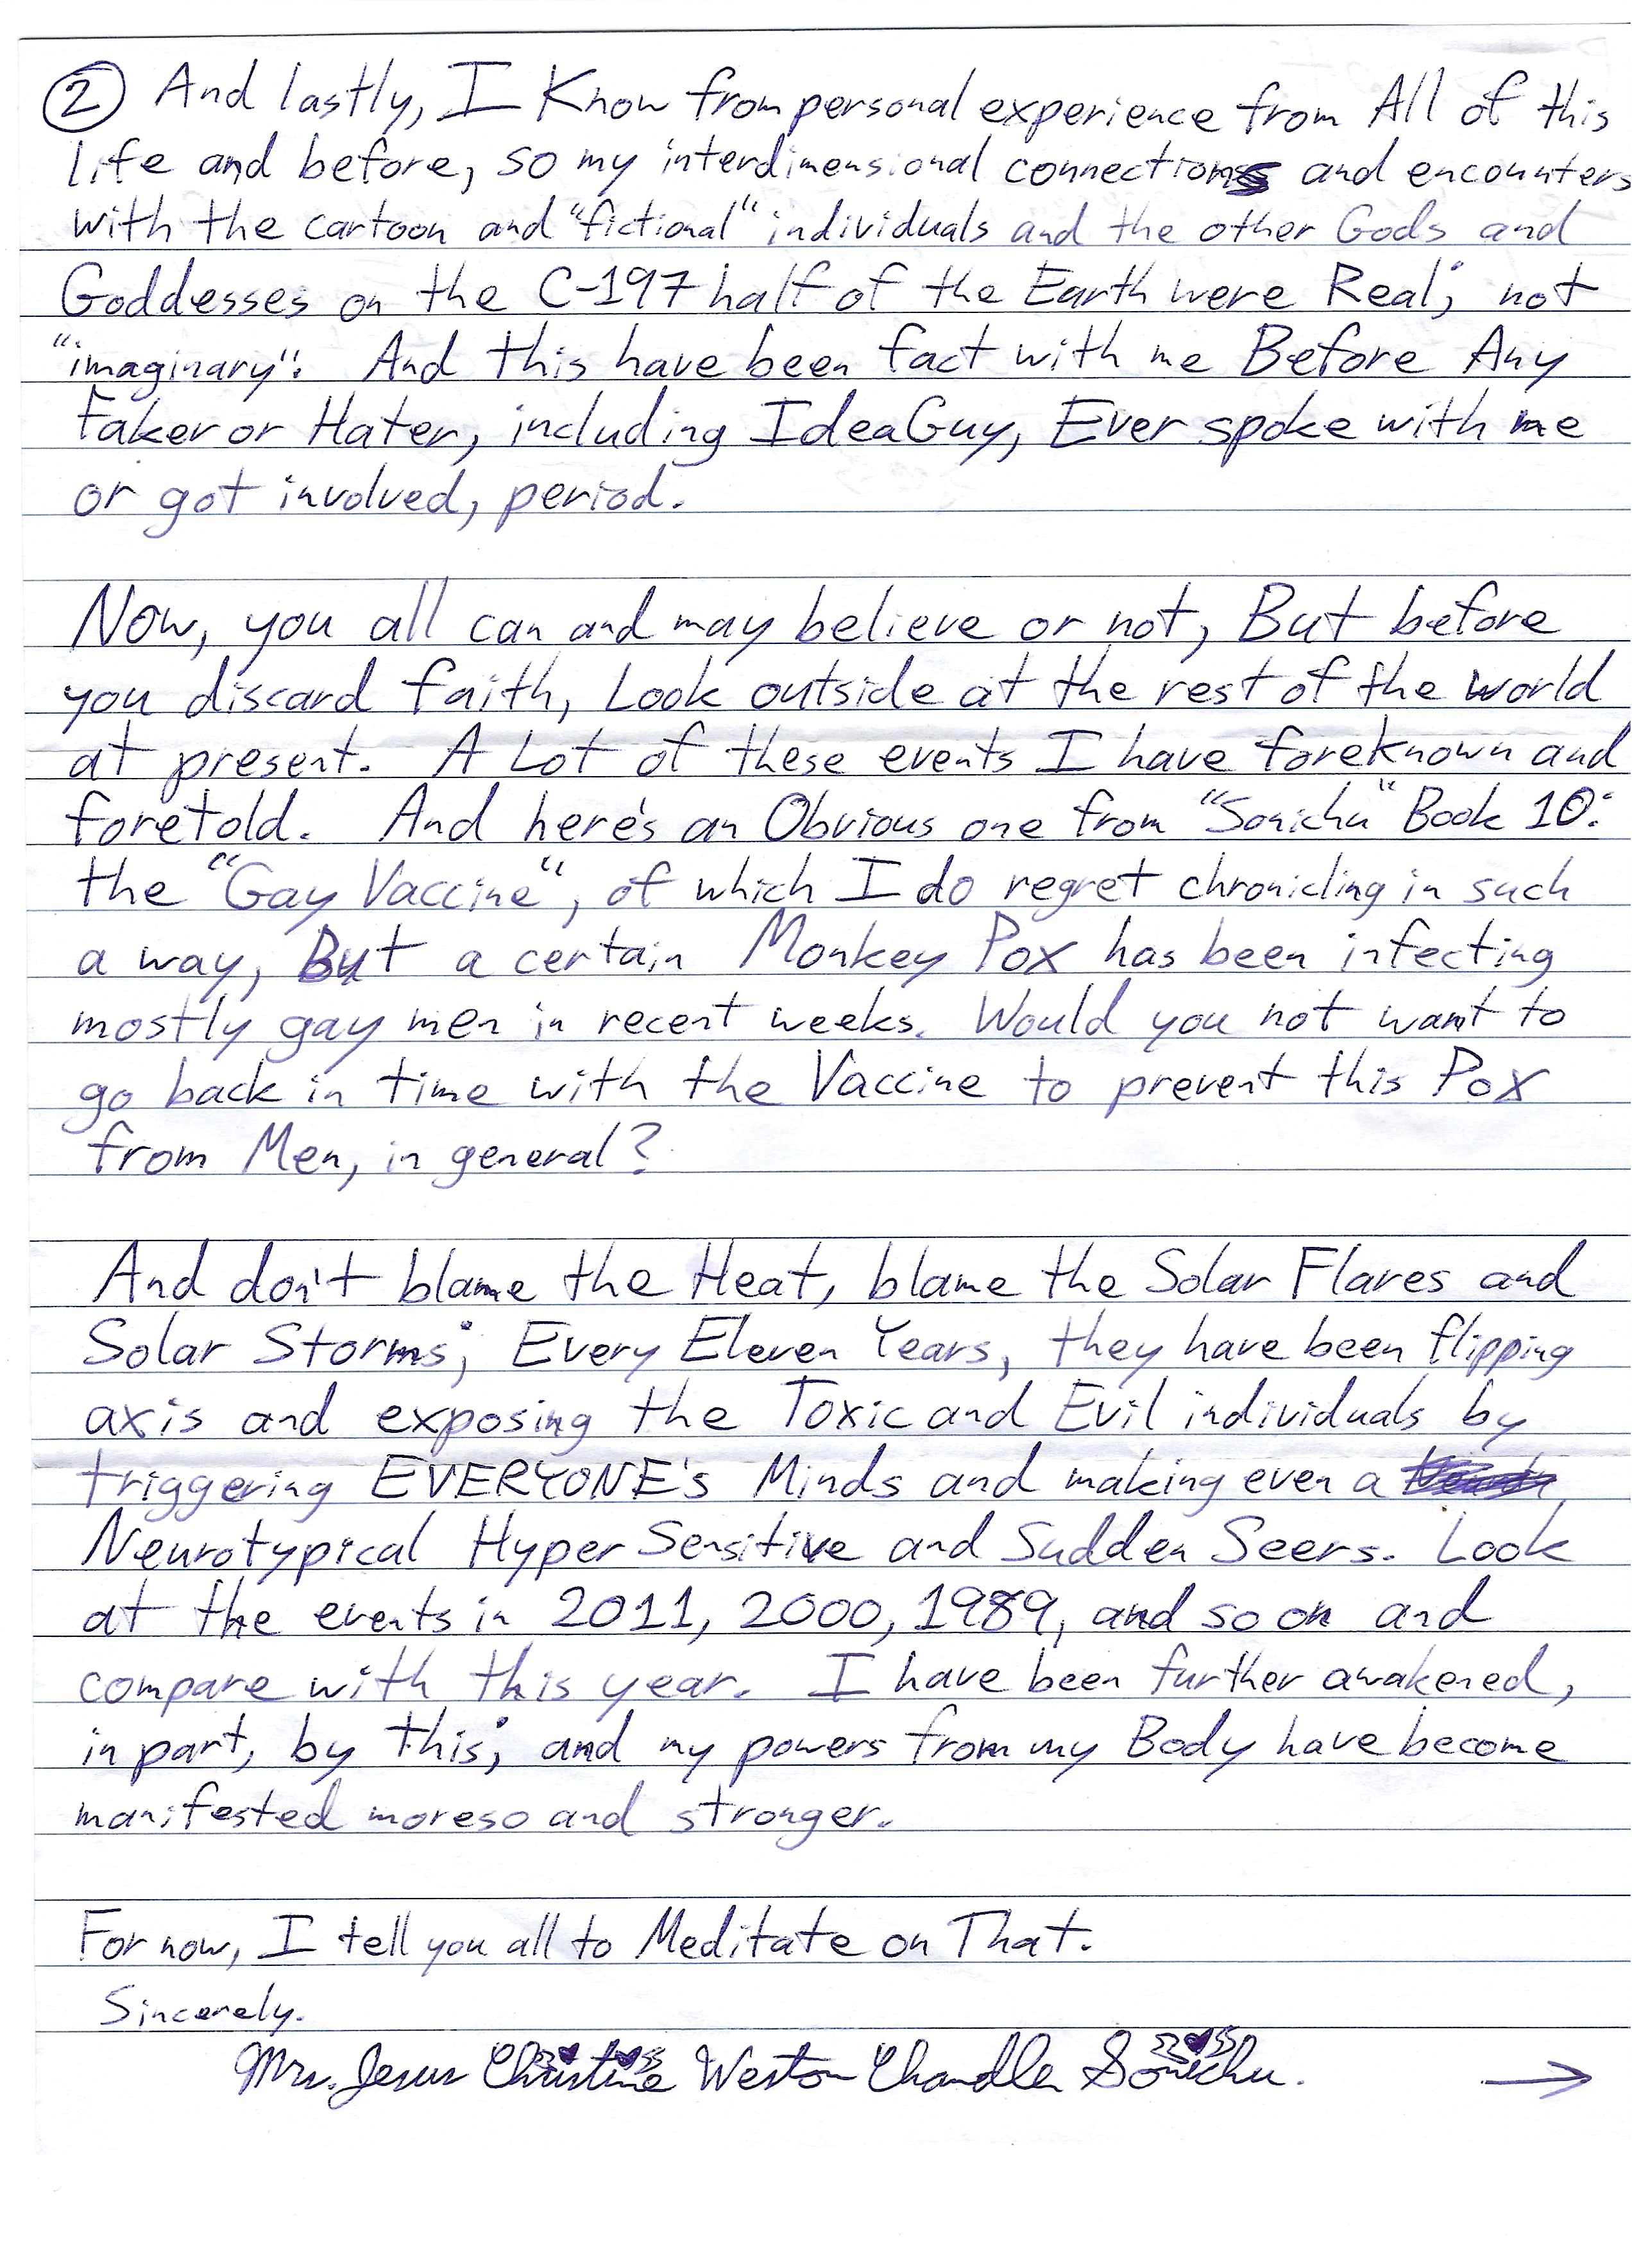 ② And lastly, I Know from personal experience from All of this
life and before, so my interdimensional connections and encounters
with the cartoon and "fictional" individuals and the other Gods and
Goddesses on the C-197 half of the Earth were Real; not
"imaginary". And this have been fact with me Before Any
Faker or Hater, including IdeaGuy, Ever spoke with me
or got involved, period.
Now, you all can and may believe or not, But before
you discard faith, Look outside at the rest of the world
at present. A Lot of these events I have foreknown and
foretold. And here's an Obvious one from "Sonichu" Book 10:
the "Gay Vaccine", of which I do regret chronicling in such
a way, But a certain Monkey Pox has been infecting
mostly gay men in recent weeks. Would you not want to
go back in time with the Vaccine to prevent this Pox
from Men, in general?
And don't blame the Heat, blame the Solar Flares and
Solar Storms; Every Eleven Years, they have been flipping
axis and exposing the Toxic and Evil individuals by
triggering EVERYONE's Minds and making even a
Neurotypical Hyper Sensitive and Sudden Seers. Look
at the events in 2011, 2000, 1989, and so on and
compare with this year. I have been further awakened,
in part, by this; and my powers from my Body have become
manifested moreso and stronger.
For now, I tell you all to Meditate on That.
Sincerely.
Mrs. Jesus Christine Weston Chandler Sonichu. →